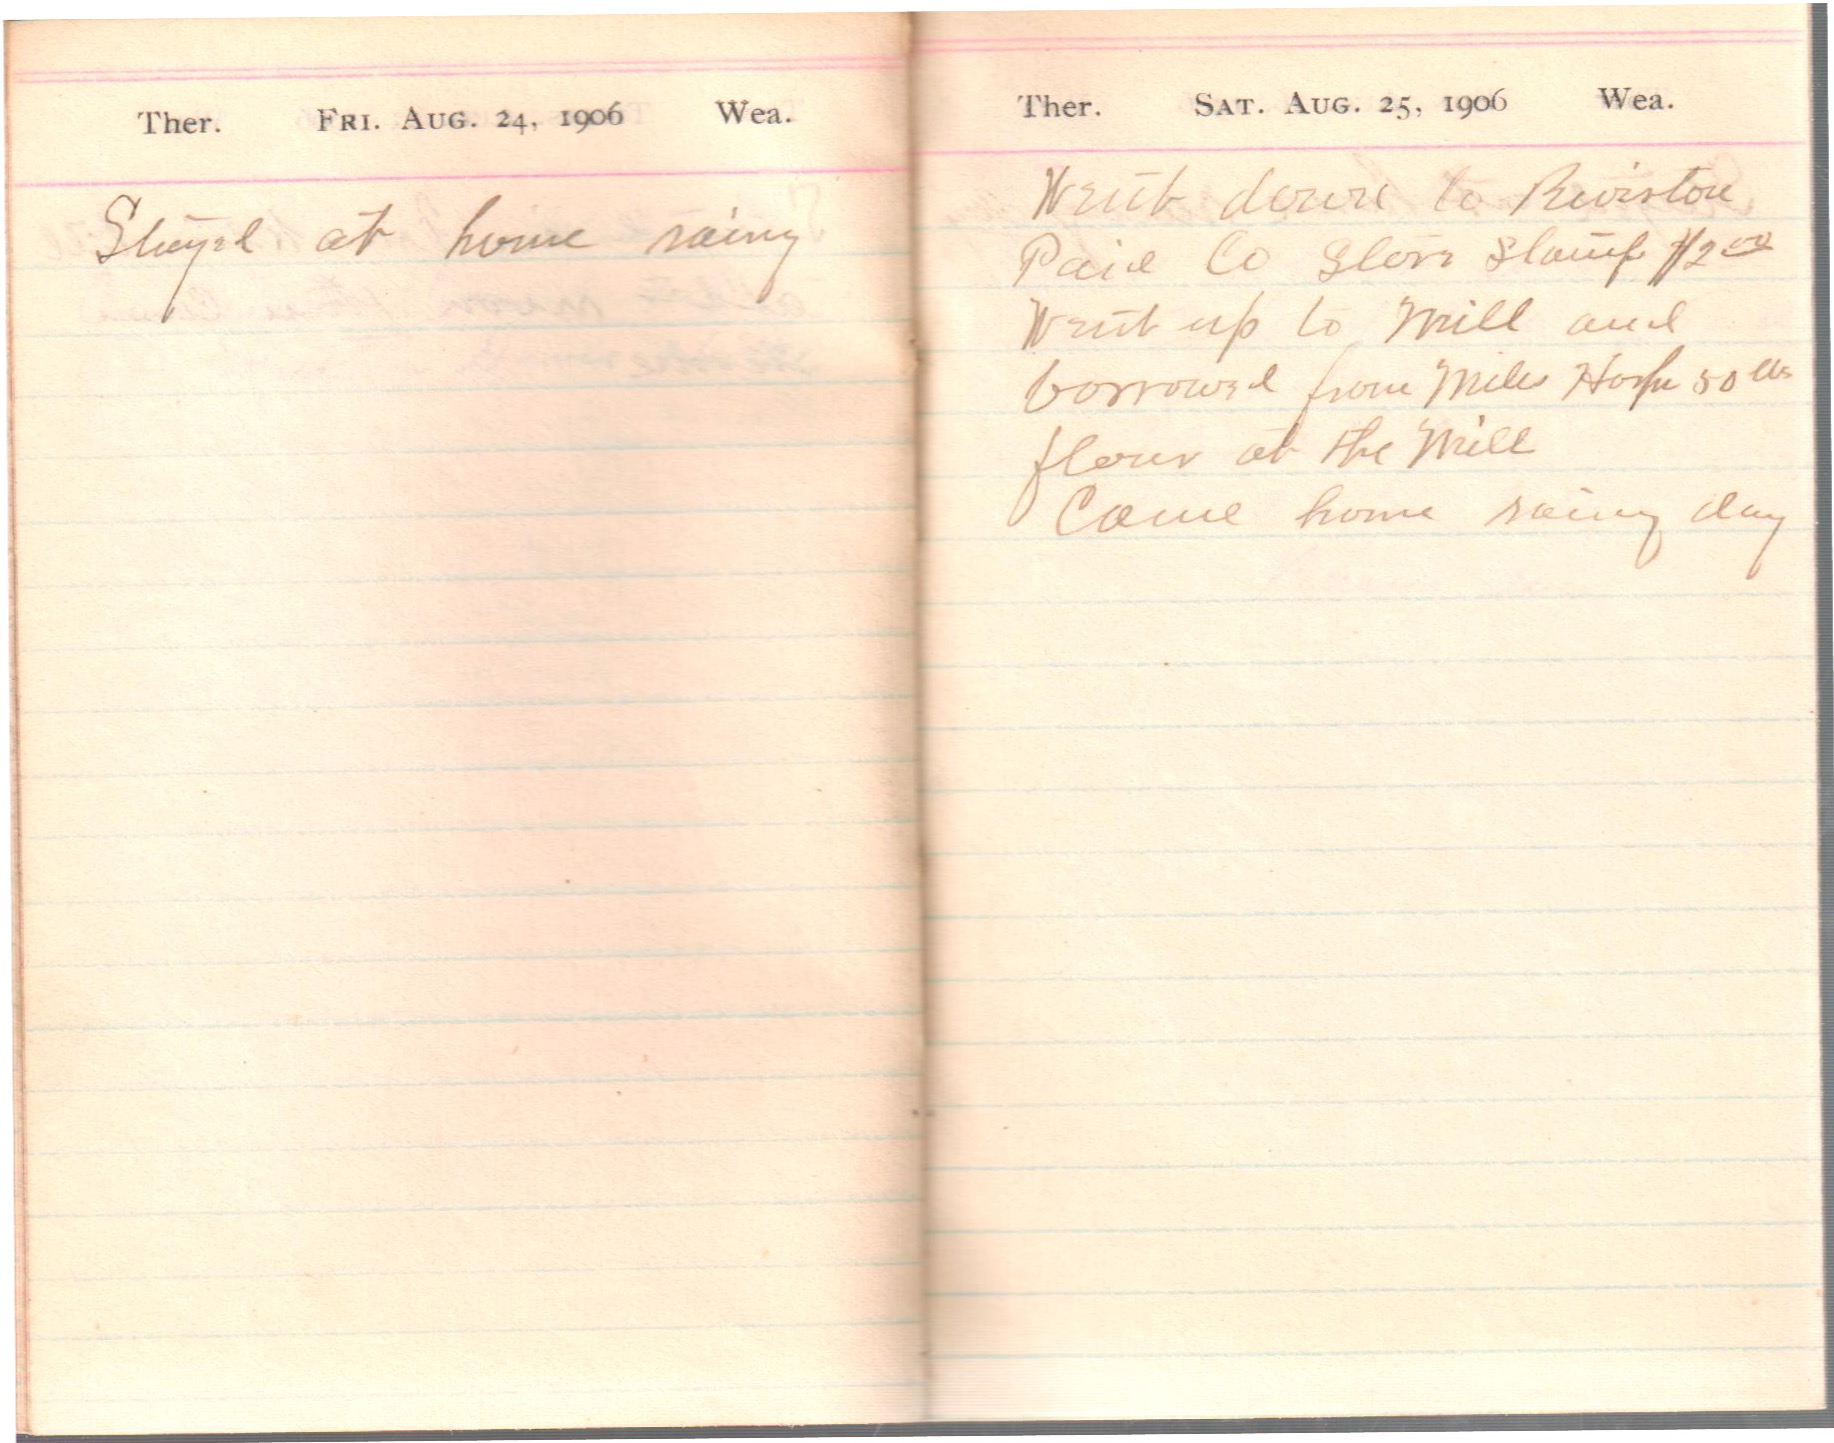 Ther. Fri. Aug. 24, 1906 Wea.
Stayed at home rainy
Ther. Sat. Aug. 25, 1906 Wea.
Went down to
Paid Co Store Stamp $2.00
Went up to Mill and
borrowed from Miles 50 lbs
flour at the Mill
Came home rainy day